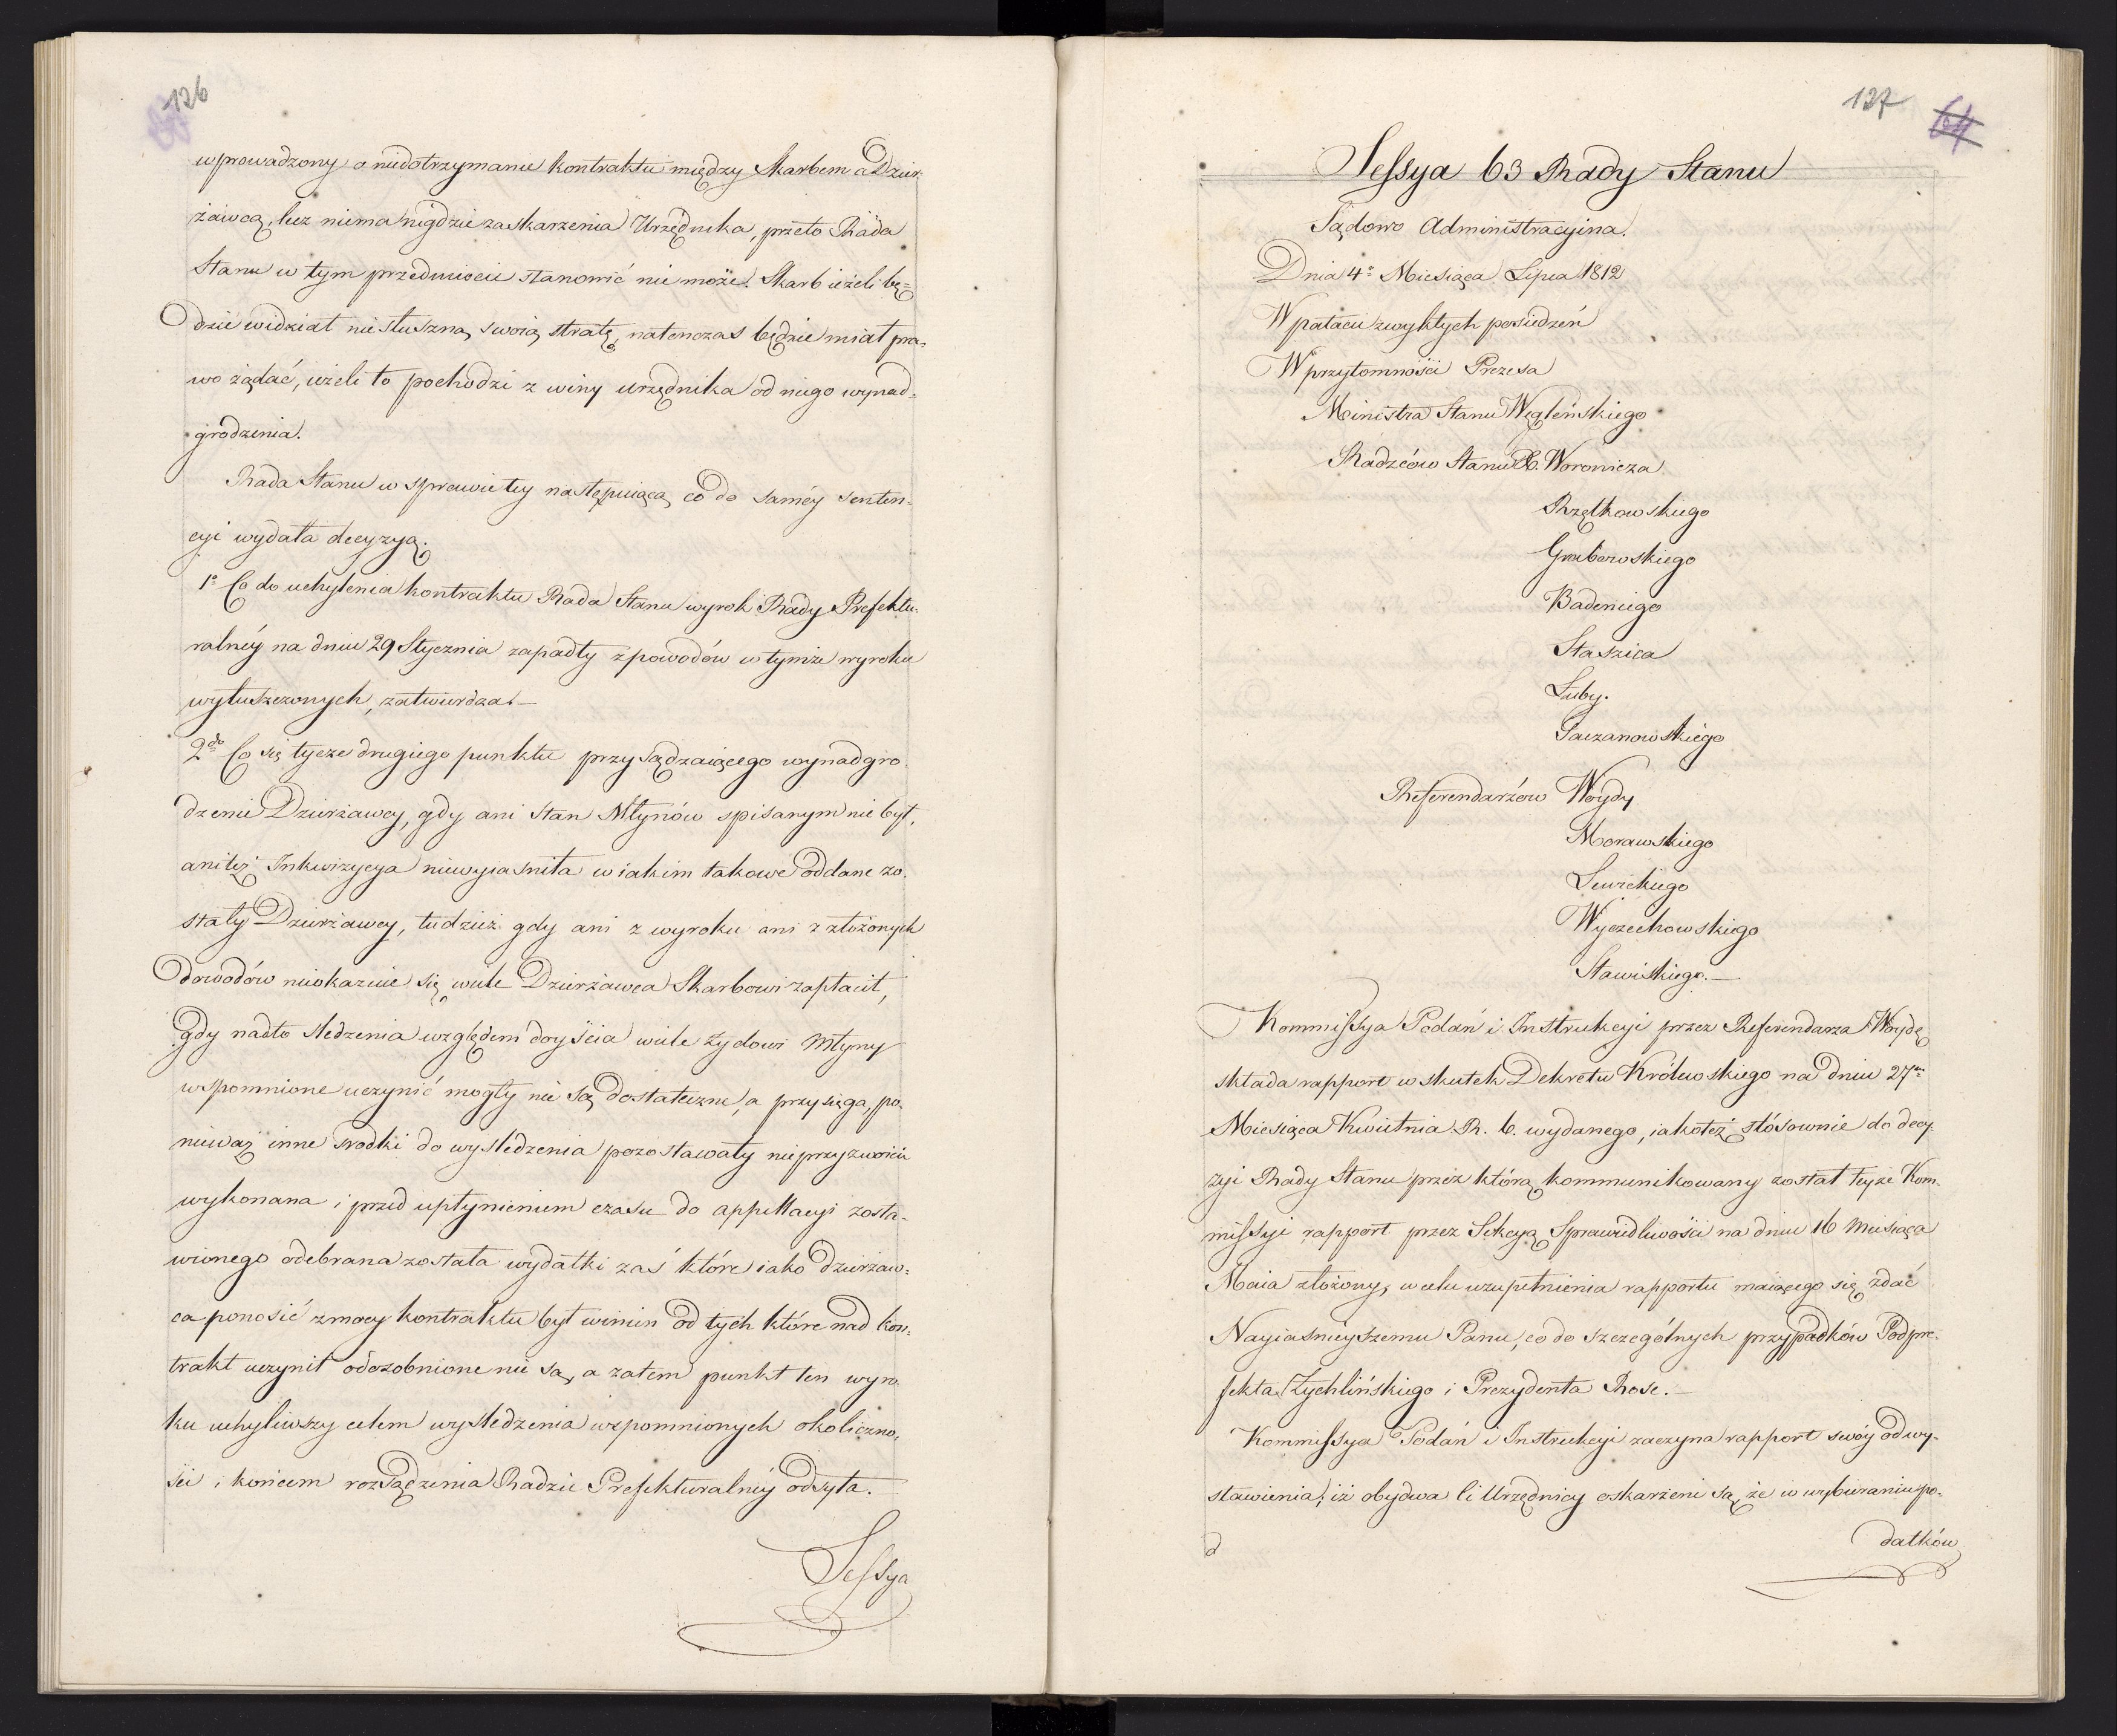 126
wprowadzony o niedotrzymanie kontraktu między Skarbem a Dzier
żawcą, lecz niema nigdzie zaskarzenia Urzędnika, przeto Rada
Stanu w tym przedmiocie stanowić nie może. Skarb ieżeli bę=
dzie widział niesłuszną swoią stratę, natenczas będzie miał pra=
wo żądać, ieżeli to pochodzi z winy urzędnika od niego wynad=
grodzenia.
Rada Stanu w sprawie tey następuiącą co do saméy senten=
cyi wydała decyzyą.
1o Co do uchylenia kontraktu Rada Stanu wyrok Rady Prefektu=
ralnéy na dniu 29 Stycznia zapadły z powodów w tymże wyroku
wyłuszczonych, zatwierdza. —
2do Co się tycze drugiego punktu przysądzaiącego wynadgro
dzenie Dzierżawcy, gdy ani stan Młynów spisanym nie był,
ani też Inkwizycya niewyiaśniła w iakim takowe oddane zo=
stały Dzierżawcy, tudzież gdy ani z wyroku ani z złożonych
dowodów nieokazuie się wiele Dzierżawca Skarbowi zapłacił,
gdy nadto śledzenia względem doyścia wiele Żydowi Młyny
wspomnione uczynić mogły nie są dostateczne, a przysięga, po=
nieważ inne środki do wyśledzenia pozostawały nieprzyzwoicie
wykonana i przed upłynieniem czasu do appellacyi zosta=
wionego odebrana została wydatki zaś które iako dzierżaw=
ca ponosić z mocy kontraktu był winien od tych które nad kon=
trakt uczynił odosobnione nie są, a zatem punkt ten wyro
ku uchyliwszy celem wyśledzenia wspomnionych okoliczno=
ści i końcem rozsądzenia Radzie Prefekturalnéy odsyła.
Sessya
127
64
Sessya 63 Rady Stanu
Sądowo Administracyina.
Dnia 4o Miesiąca Lipca 1812
W pałacu zwykłych posiedzeń
W przytomności Prezesa
Ministra Stanu Węgleńskiego
Radzców Stanu X. Woronicza
Rzętkowskiego
Grabowskiego
Badeniego
Staszica
Luby.
Saczanowskiego
Referendarzów Woydy
Morawskiego
Lewickiego
Wyczechowskiego
Stawiskiego. —
Kommissya Podań i Instrukcyi przez Referendarza Woydę
składa rapport w skutek Dekretu Królewskiego na dniu 27m
Miesiąca Kwietnia R. b. wydanego, iakoteż stósownie do decy=
zyi Rady Stanu przez którą kommunikowany został teyże Kom=
missyi rapport przez Sekcyą Sprawiedliwości na dniu 16 Miesiąca
Maia złożony, w celu uzupełnienia rapportu maiącego się zdać
Nayiaśnieyszemu Panu, co do szczególnych przypadków Podpre=
fekta Zychlińskiego i Prezydenta Rose. —
Kommissya Podań i Instrukcyi zaczyna rapport swóy od wy=
stawienia, iż obydwa ci Urzędnicy oskarżeni są, że w wybieraniu po=
datków